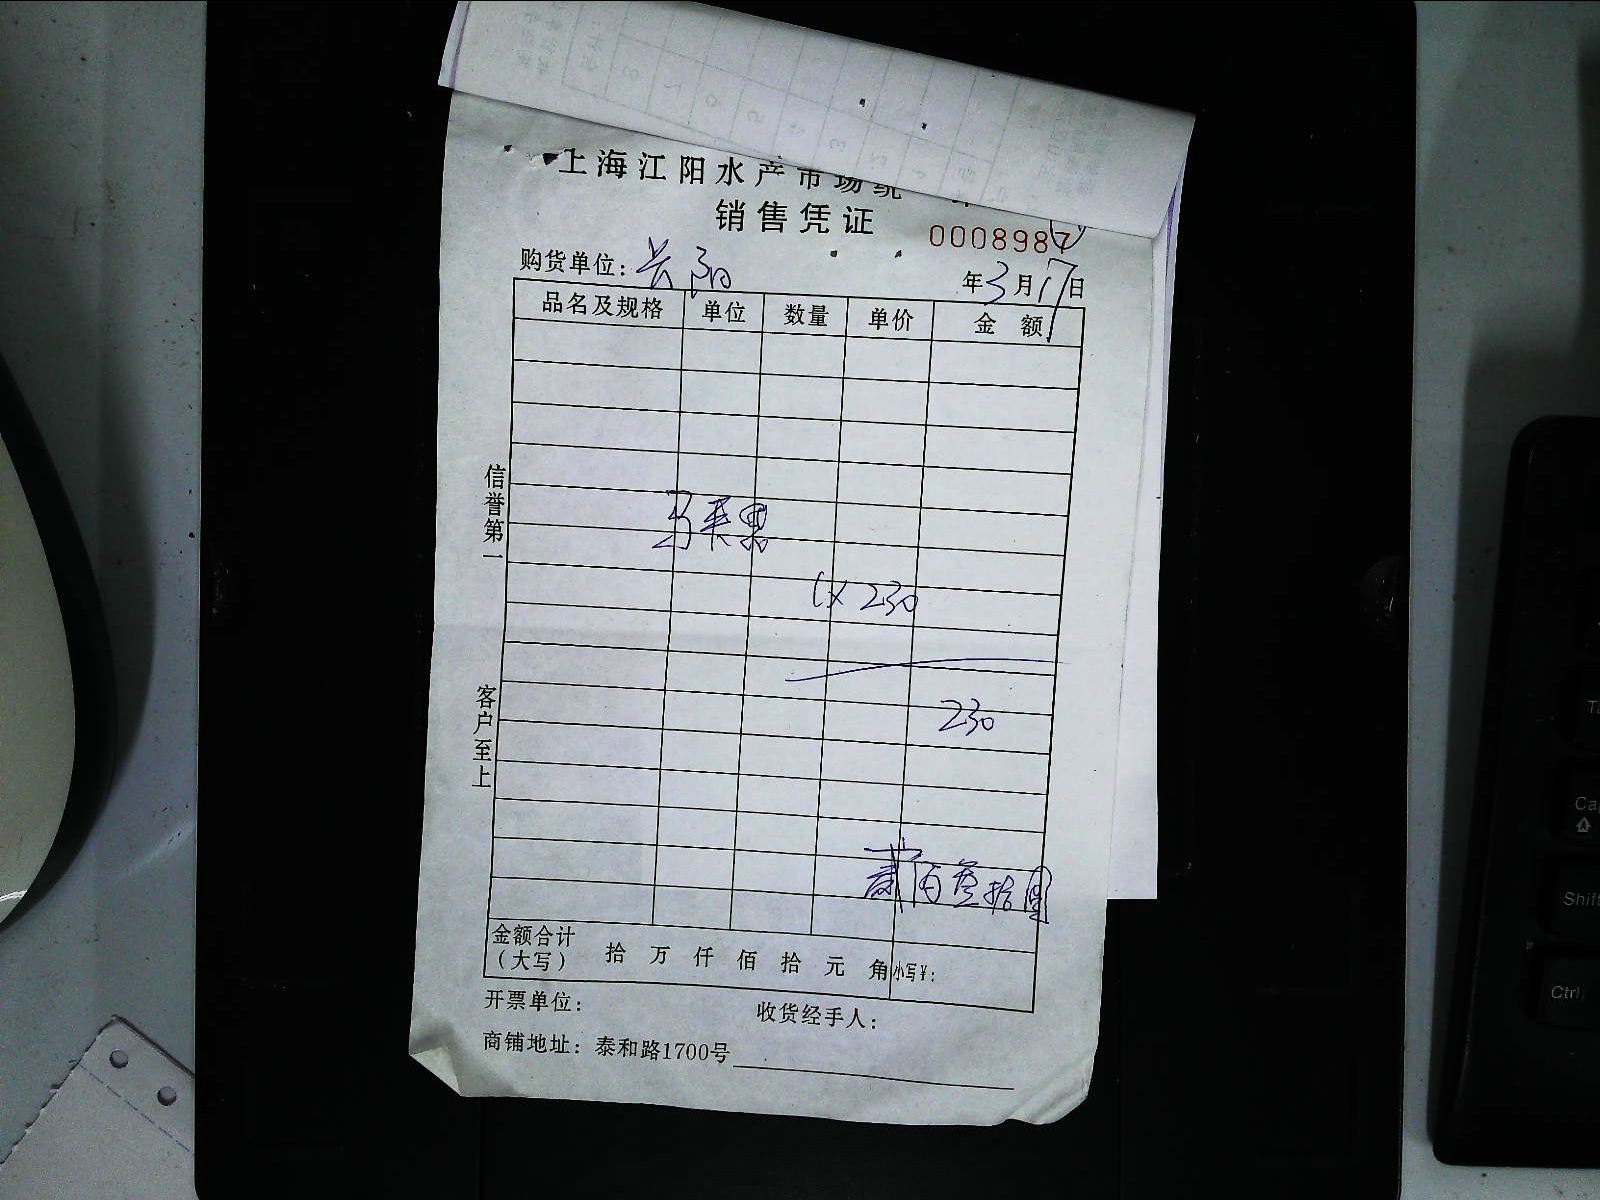 上海江阳水产市场统
销售凭证
0008987
购货单位：长阳
年3月17日
品名及规格 单位 数量 单价 金额
马来果
1×230
230
贰百叁拾圆
信誉第一
客户至上
金额合计（大写） 拾 万 仟 佰 拾 元 角 小写¥：
开票单位： 收货经手人：
商铺地址：泰和路1700号
Caps
Shift
Ctrl